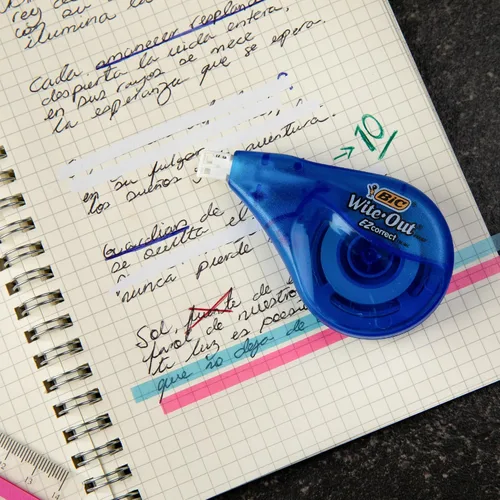 rey de
con su
ilumina la
Cada amanecer resplan
despierta la vida entera,
en sus rayos se mece
la esperanza que se espera.
en su fulgor
los sueños aventura.
10
Guardias de
se oculta el
nunca pierde
Sol, fuente de
farol de nuestros
tu luz es poesía
que no deja de
BIC
Wite·Out
EZ correct
12 13 14